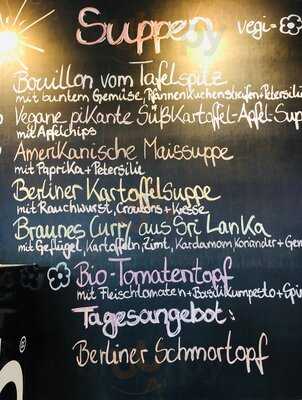 Suppen vegi-
Bouillon vom Tafelspitz
mit buntem Gemüse, Pfannenkuchenstreifen, Petersilie
Vegane pikante Süßkartoffel-Apfel-Sup
mit Apfelchips
Amerikanische Maissuppe
mit Paprika + Petersilie
Berliner Kartoffelsuppe
mit Rauchwurst, Croutons + Kresse
Braunes Curry aus Sri Lanka
mit Geflügel, Kartoffeln, Zimt, Kardamom, Koriander + Gem
Bio-Tomatentopf
mit Fleischtomaten + Basilikumpesto +
Tagesangebot:
Berliner Schmortopf